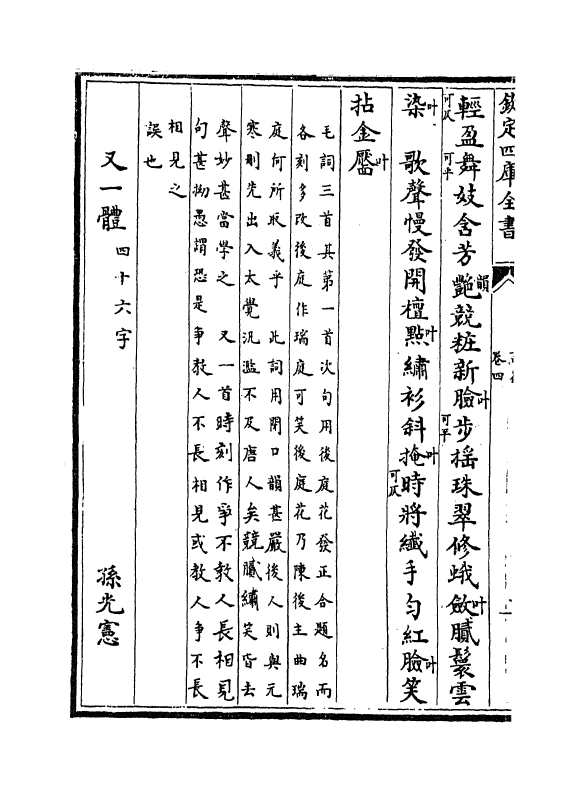 欽定四庫全書
卷四
輕盈舞妓含芳艷韻競粧新臉叶步搖珠翠修蛾斂叶膩鬟雲
可仄 可平 可平
染叶 歌聲慢發開檀點叶繡衫斜掩叶時將纖手勻紅臉叶笑
可仄
拈金靨叶
毛詞三首其第一首次句用後庭花發正合題名而
各刻多改後庭作瑞庭可笑後庭花乃陳後主曲瑞
庭何所取義乎 此詞用閉口韻甚嚴後人則與元
寒刪先出入太覺汎濫不及唐人矣競膩繡笑皆去
聲妙甚當學之 又一首時刻作爭不教人長相見
句甚拗愚謂恐是爭教人不長相見或教人爭不長
相見之
誤也
又一體 四十六字 孫光憲